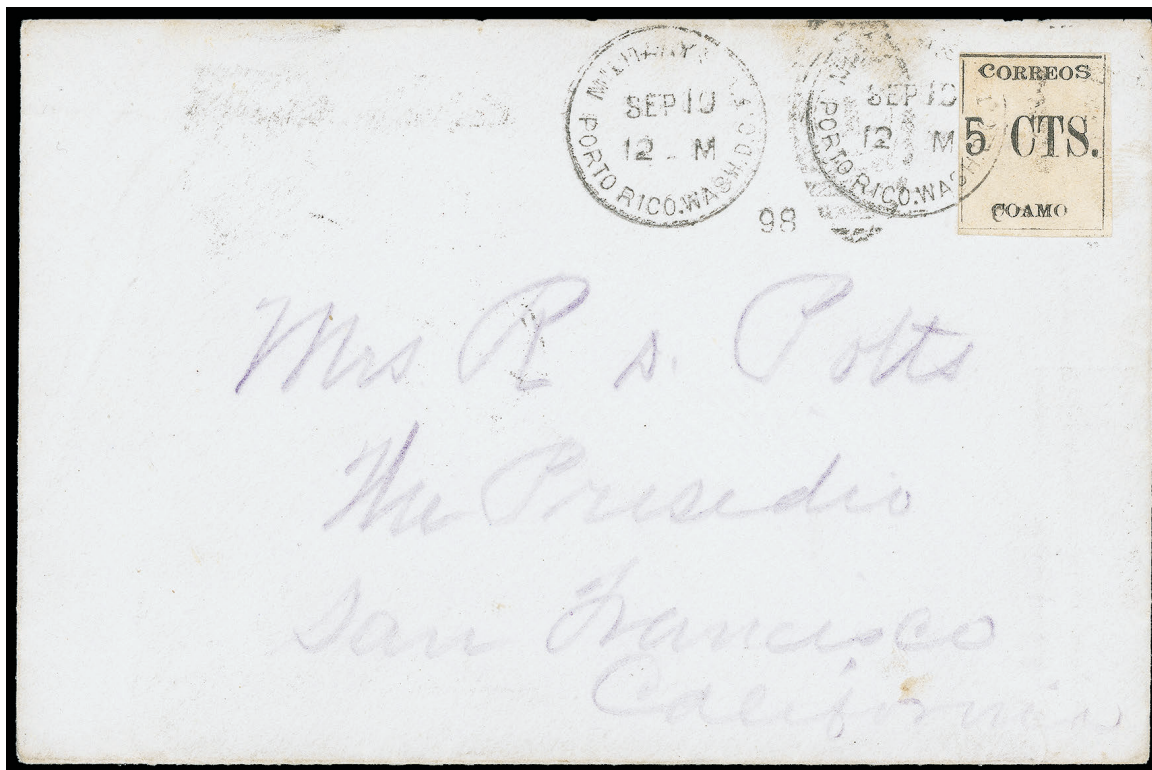 MILITARY STA. WASH. D.C.
PORTO RICO.
SEP 10
12 - M
98
PORTO RICO. WASH
SEP 10
12 M
CORREOS
5 CTS.
COAMO
Mrs R S. Potts
The Presidio
San Francisco
California